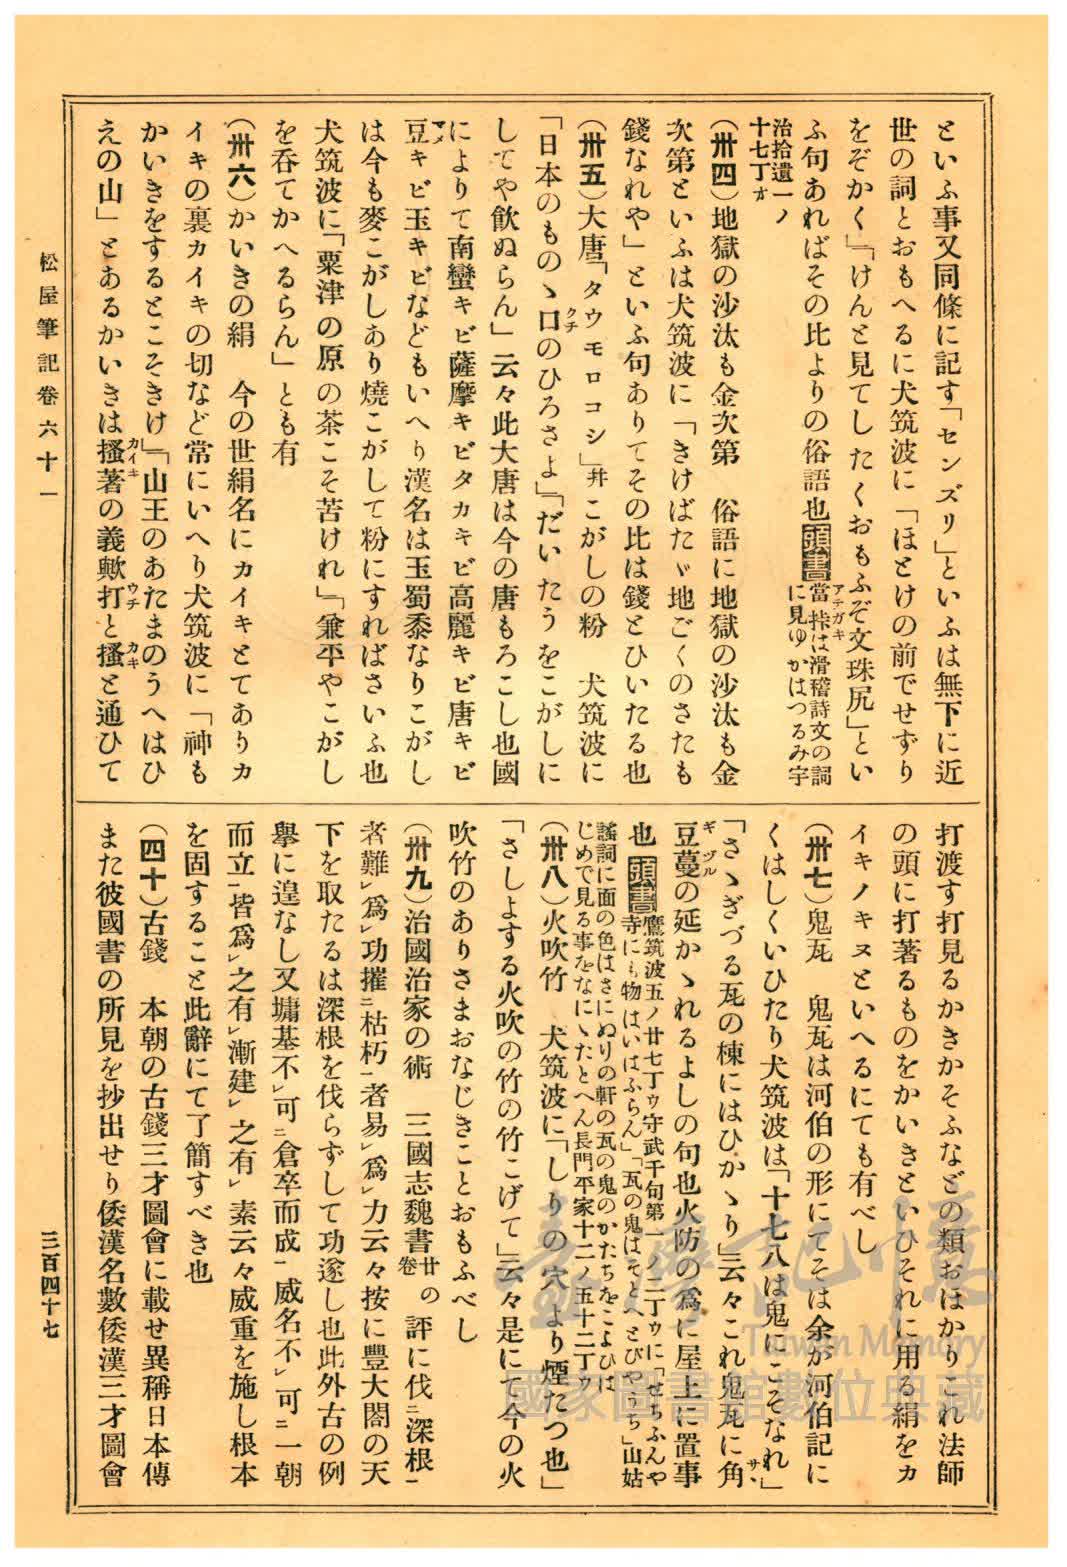 といふ事又同條に記す「センズリ」といふは無下に近
世の詞とおもへるに犬筑波に「ほとけの前でせずり
をぞかく」「けんと見てしたくおもふぞ文珠尻」とい
ふ句あればその比よりの俗語也頭書當垰は滑稽詩文の詞
アテガキ
に見ゆかはつるみ宇
治拾遺一ノ
十七丁オ
(卅四)地獄の沙汰も金次第 俗語に地獄の沙汰も金
次第といふは犬筑波に「きけばたゞ地ごくのさたも
錢なれや」といふ句ありてその比は錢とひいたる也
(卅五)大唐「タウモロコシ」幷こがしの粉 犬筑波に
「日本のものゝ口のひろさよ」「だいたうをこがしに
クチ
してや飮ぬらん」云々此大唐は今の唐もろこし也國
によりて南蠻キビ薩摩キビタカキビ高麗キビ唐キビ
豆キビ玉キビなどもいへり漢名は玉蜀黍なりこがし
マメ
は今も麥こがしあり燒こがして粉にすればさいふ也
犬筑波に「粟津の原の茶こそ苦けれ」「兼平やこがし
を呑てかへるらん」とも有
(卅六)かいきの絹 今の世絹名にカイキとてありカ
イキの裏カイキの切など常にいへり犬筑波に「神も
かいきをするとこそきけ」「山王のあたまのうへはひ
えの山」とあるかいきは搔著の義歟打と搔と通ひて
カイキ
ウチ
カキ
打渡す打見るかきかそふなどの類おほかりこれ法師
の頭に打著るものをかいきといひそれに用る絹をカ
イキノキヌといへるにても有べし
(卅七)鬼瓦 鬼瓦は河伯の形にてそは余が河伯記に
くはしくいひたり犬筑波は「十七八は鬼にこそなれ」
「さゝぎづる瓦の棟にはひかゝり」云々これ鬼瓦に角
サヽ
豆蔓の延かゝれるよしの句也火防の爲に屋上に置事
ギヅル
也頭書鷹筑波五ノ廿七丁ゥ守武千句第一ノ二丁ゥに「せちふんや
寺にも物はいはふらん」「瓦の鬼はそとへとびやうち」山姑
謠詞に面の色はさにぬりの軒の瓦の鬼のかたちをこよひは
じめで見る事をなにゝたとへん長門平家十二ノ五十二丁ゥ
(卅八)火吹竹 犬筑波に「しりの穴より煙たつ也」
「さしよする火吹の竹の竹こげて」云々是にて今の火
吹竹のありさまおなじきことおもふべし
(卅九)治國治家の術 三國志魏書卷廿の評に伐ニ深根一
者難レ爲レ功摧ニ枯朽一者易レ爲レ力云々按に豐大閤の天
下を取たるは深根を伐らずして功遂し也此外古の例
擧に遑なし又墉基不レ可ニ倉卒而成一威名不レ可ニ一朝
而立一皆爲レ之有レ漸建レ之有レ素云々威重を施し根本
を固すること此辭にて了簡すべき也
(四十)古錢 本朝の古錢三才圖會に載せ異稱日本傳
また彼國書の所見を抄出せり倭漢名數倭漢三才圖會
松屋筆記卷六十一
三百四十七
臺灣記憶
Taiwan Memory
國家圖書館數位典藏